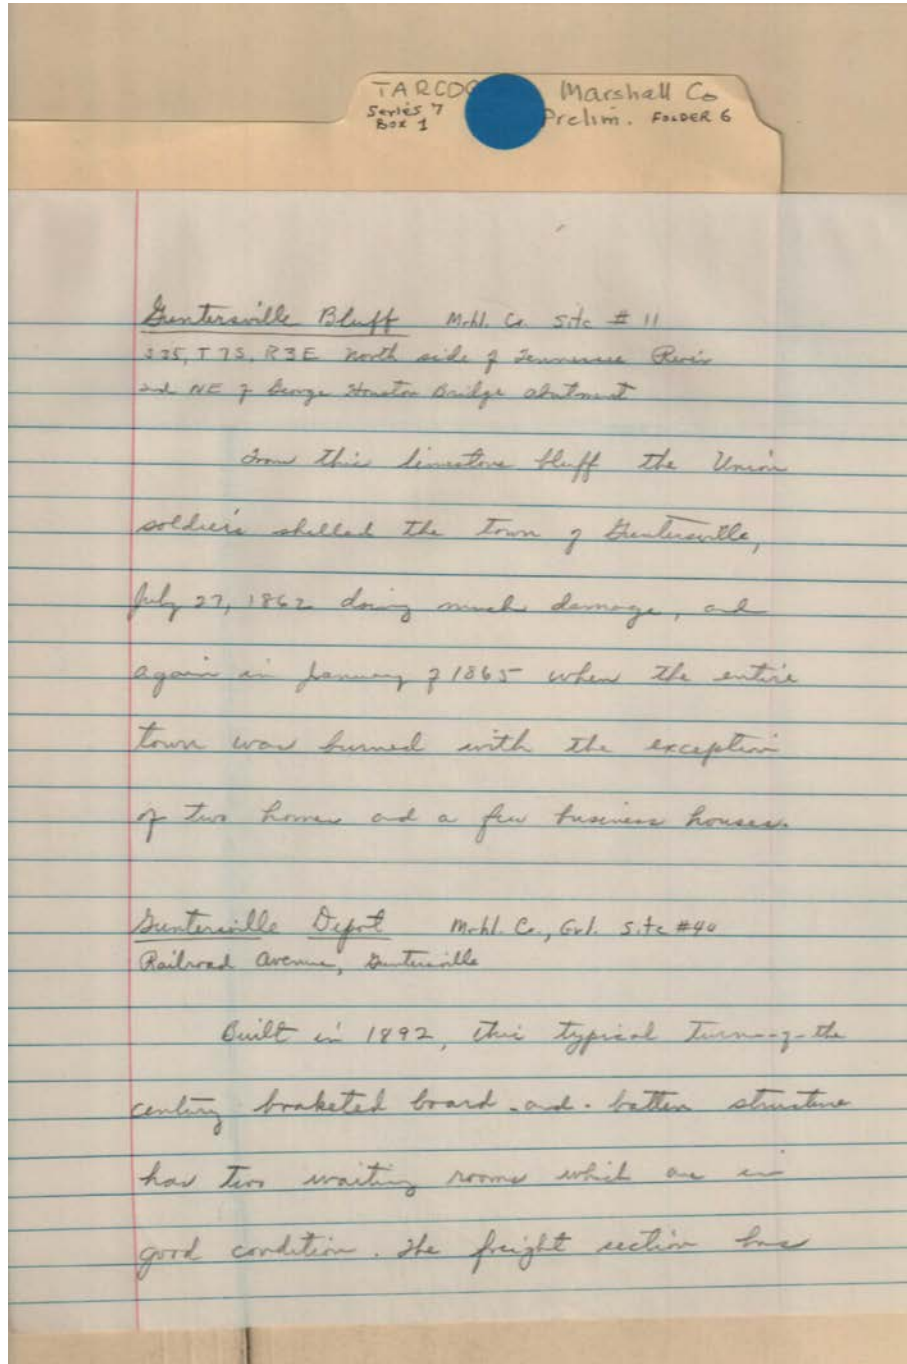 TARCOG Marshall Co
Series 7 Prelim. FOLDER 6
Box 1
Guntersville Bluff Mrhl. Co. Site # 11
S35, T7S, R3E North side of Tennessee River
and NE of George Houston Bridge abutment
From this limestone bluff the Union
soldiers shelled the town of Guntersville,
July 27, 1862 doing much damage, and
again in January of 1865 when the entire
town was burned with the exception
of two homes and a few business houses.
Guntersville Depot Mrhl. Co., Gvl. Site #40
Railroad Avenue, Guntersville
Built in 1892, this typical turn-of-the
century braketed board-and-batten structure
has two waiting rooms which are in
good condition. The freight section has